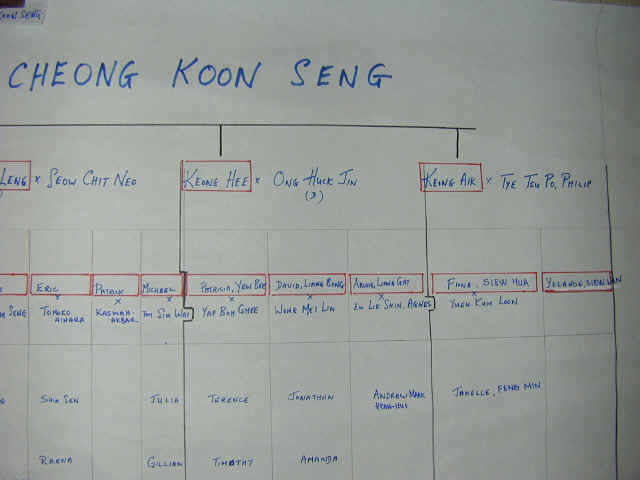 KOON SENG
CHEONG KOON SENG
LENG x SEOW CHIT NEO
KEONG HEE x ONG HUCK JIN
KENG AIK x TYE TEU PO, PHILIP
ERIC
PATRICK
MICHAEL
PATRICIA, YEW BEE
DAVID, LIANG BENG
LIANG GAY
FIONA, SIEW HUA
YOLANDE, SIEW LAN
x x x x x x x
TOMOKO AIHARA
KASMAH-AKBAR
TAN SIW WAI
YAP BOH GHEE
WONG MEI LIN
LIE SHIN, AGNES
YUEN KUM LOON
SHIA SEN
JULIA
TERENCE
JONATHAN
ANDREW MARK
JANELLE, FENG MIN
RAENA
GILLIAN
TIMOTHY
AMANDA